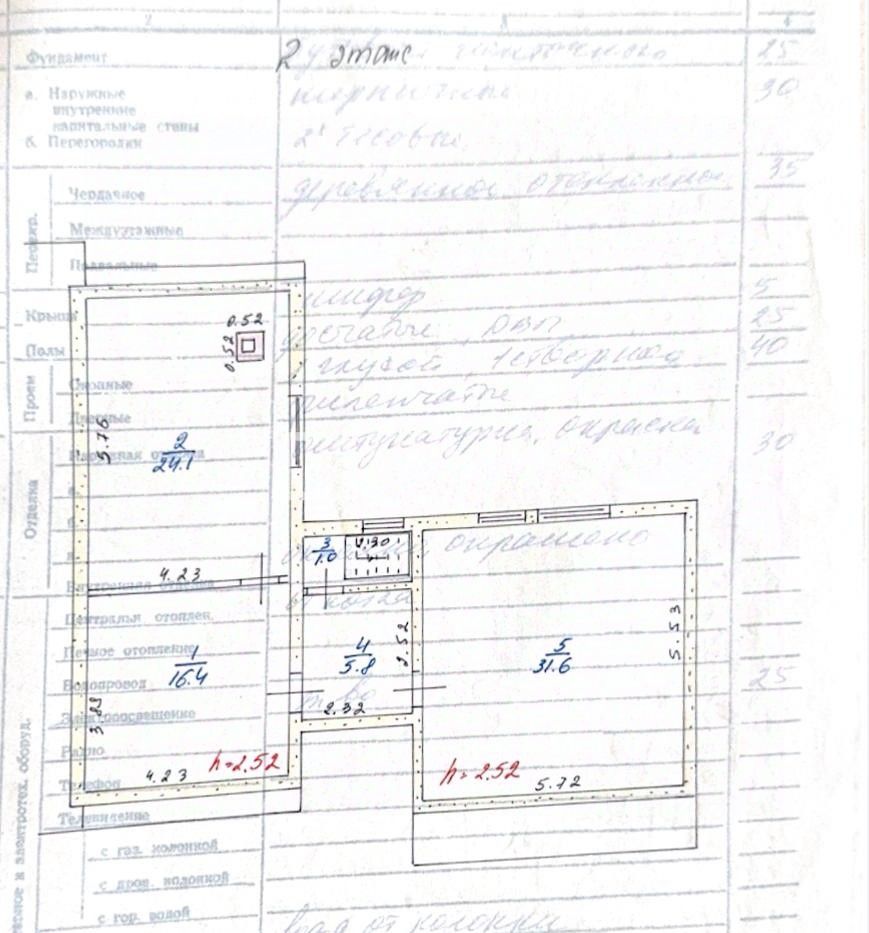 2 3 4
Фундамент 25
2 этаж
а. Наружные 30
внутренние
капитальные стены
б. Перегородки 2х тесовые
35
Чердачное деревянное отепленное
Перекр.
Междуэтажные
Подвальные
Крыша шифер 5
дощатые, ДВП 25
Полы 40
1 глухой, 1 створная
Проем
Оконные
Дверные филенчатые
Наружная отделка штукатурка, окраска 30
Отделка
а.
б.
в.
окрашено
Внутренняя отделка
Централья отоплен. от котла
Печное отопление
Водопровод 25
Электроосвещение
Радио
Телефон
Телевидение
с газ. колонкой
с дров. колонкой
с гор. водой
вода от колонки
электротех. оборуд.
0.52
0.52
5.76
2
24.1
4.23
3
1.0
1.30
1
16.4
3.88
4.23
h=2.52
4
5.8
2.52
2.32
5
31.6
5.53
h=2.52
5.72